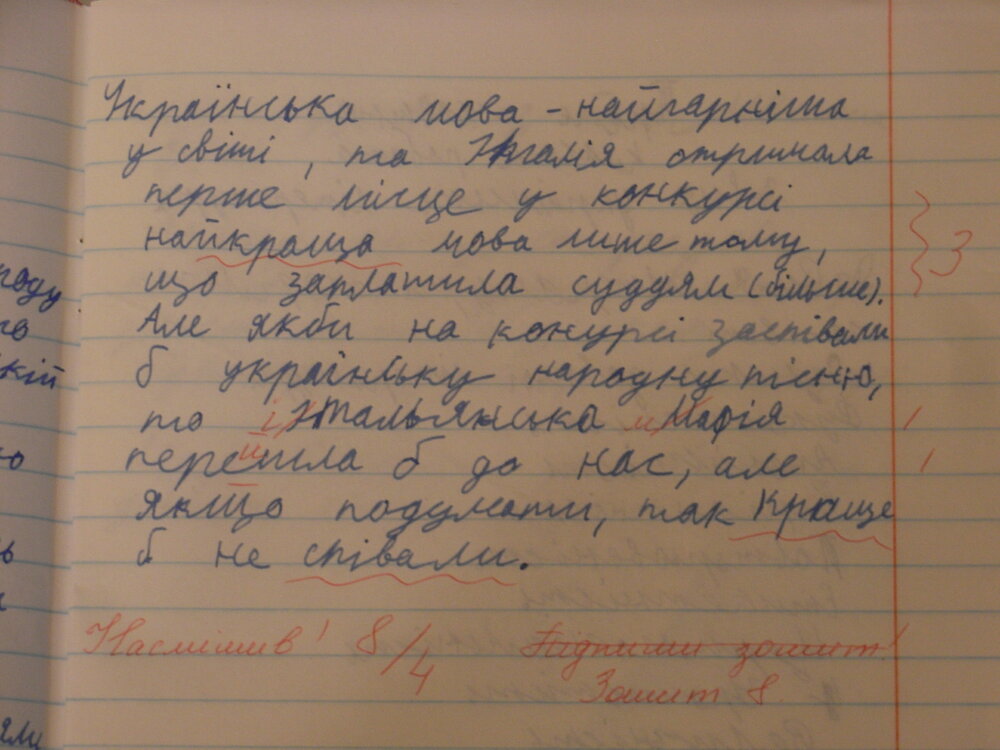 Українська мова - найгарніша
у світі, та Італія отримала
перше місце у конкурсі
найкраща мова лише тому,
що заплатила суддям (більше).
Але якби на конкурсі заспівали
б українську народну пісню,
то Італьянська Мафія
перешла б до нас, але
якщо подумати, так краще
б не співали.
Насмішив! 8/4 Підпиши зошит!
Зошит 8
3